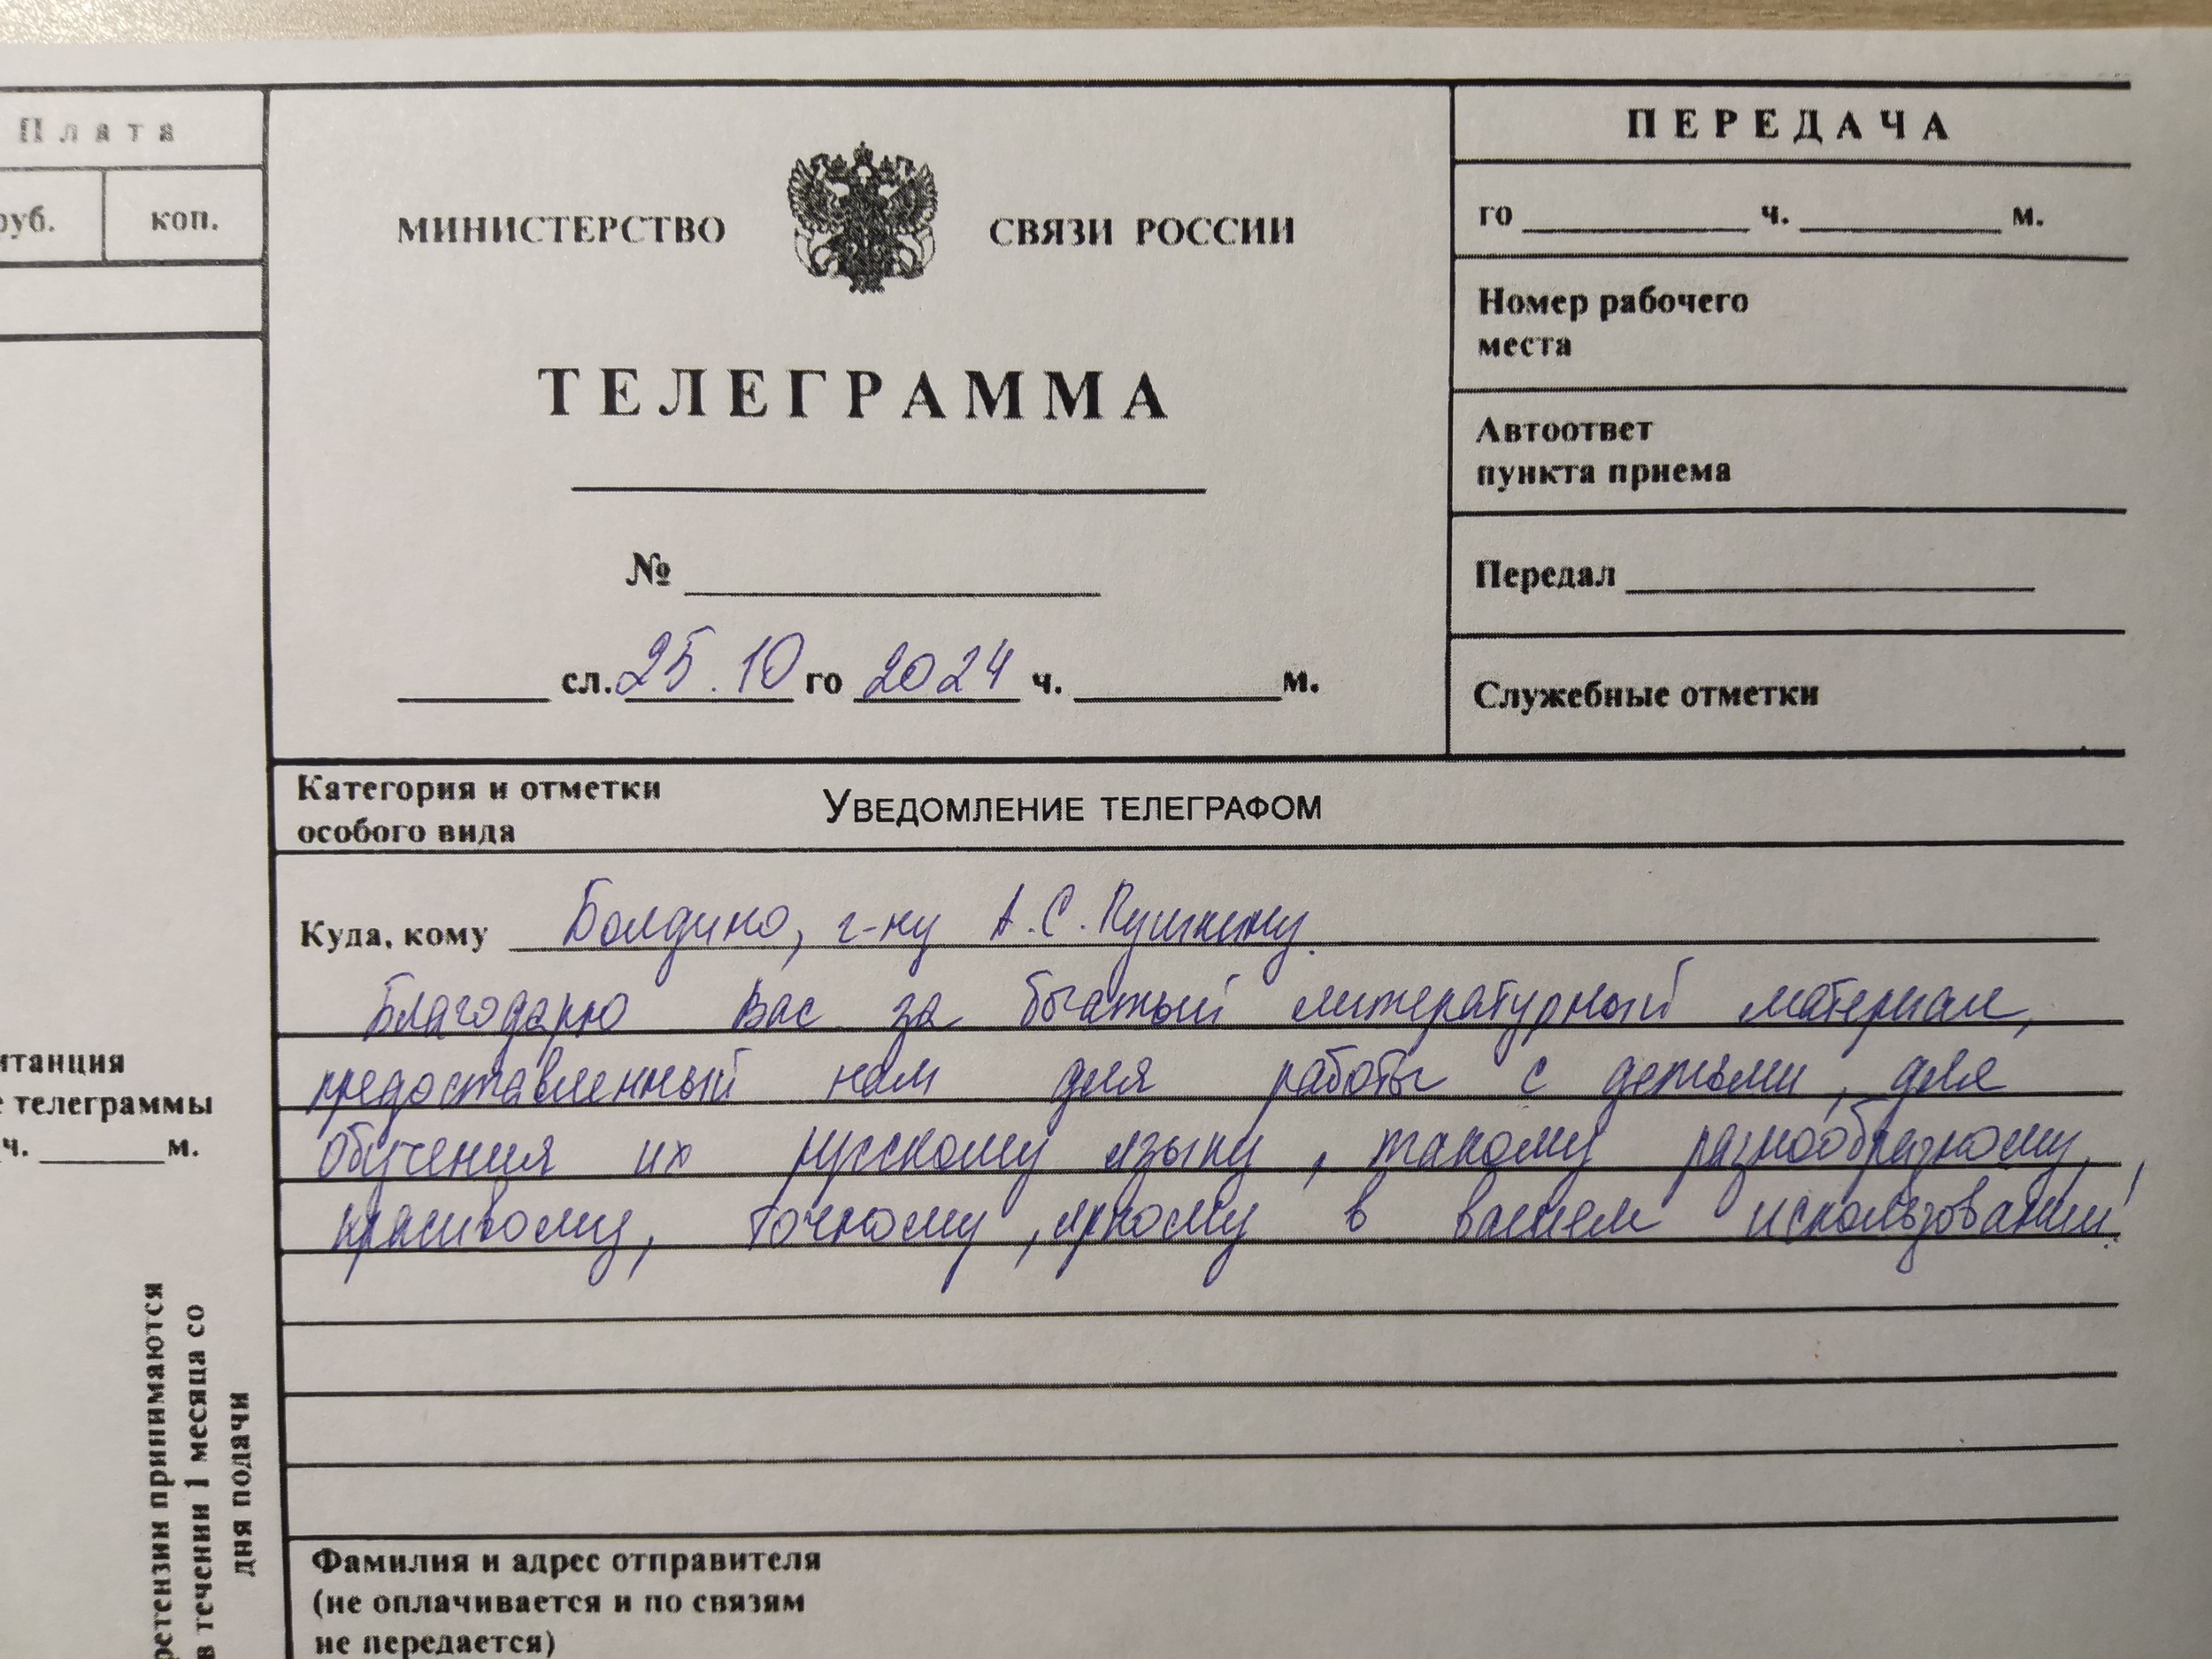 Плата
руб. коп.
МИНИСТЕРСТВО СВЯЗИ РОССИИ
ТЕЛЕГРАММА
№
сл. 25.10 го 2024 ч. м.
ПЕРЕДАЧА
го ч. м.
Номер рабочего
места
Автоответ
пункта приема
Передал
Служебные отметки
Категория и отметки
особого вида
УВЕДОМЛЕНИЕ ТЕЛЕГРАФОМ
Куда, кому Болдино, г-ну А.С. Пушкину.
Благодарю Вас за богатый литературный материал,
предоставленный нам для работы с детьми, для
обучения их русскому языку, такому разнообразному,
красивому, точному, яркому в вашем использовании!
итанция
е телеграммы
ч. м.
ретензии принимаются
в течении 1 месяца со
дня подачи
Фамилия и адрес отправителя
(не оплачивается и по связям
не передается)